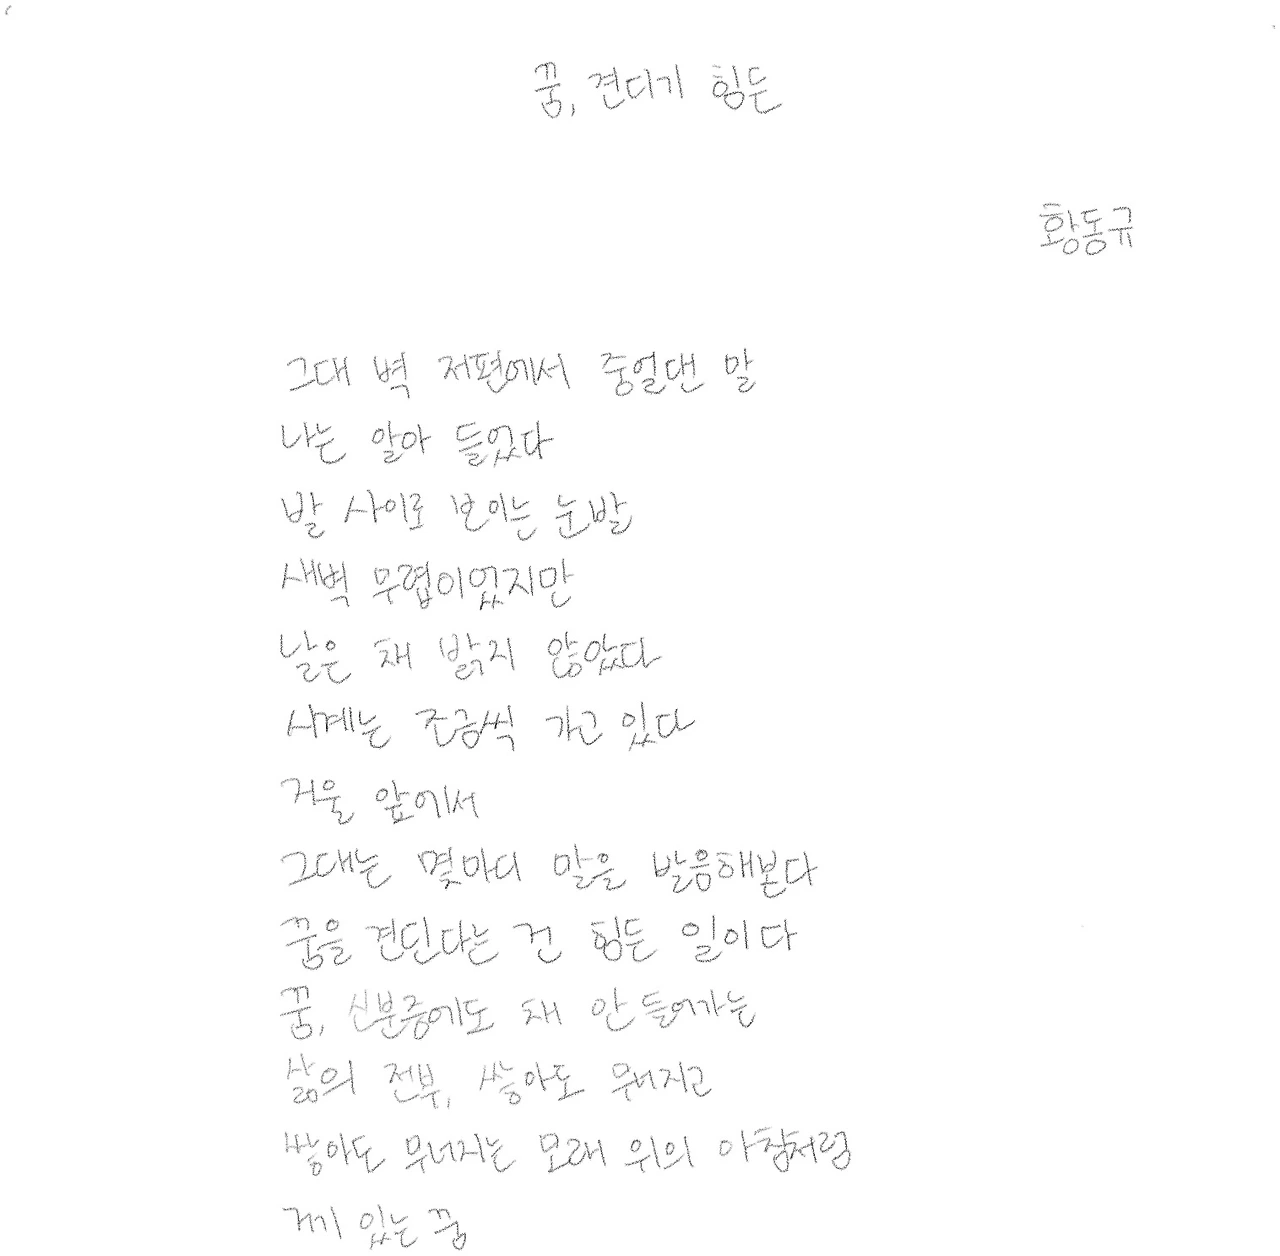 꿈, 견디기 힘든
황동규
그대 벽 저편에서 중얼댄 말
나는 알아 들었다
발 사이로 보이는 눈발
새벽 무렵이었지만
날은 채 밝지 않았다
시계는 조금씩 가고 있다
거울 앞에서
그대는 몇마디 말을 발음해본다
꿈을 견딘다는 건 힘든 일이다
꿈, 신분증에도 채 안 들어가는
삶의 전부, 쌓아도 무너지고
쌓아도 무너지는 모래 위의 아침처럼
거기 있는 꿈